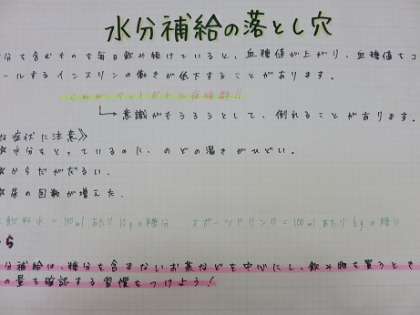 水分補給の落とし穴
分を含むものを毎日飲み続けていると、血糖値が上がり、血糖値をコ
ールするインスリンの働きが低下することがあります。
ペットボトル症候群!!
意識がもうろうとして、倒れることがあります。
な症状に注意》
水分をとっているのに、のどの渇きがひどい。
からだがだるい。
尿の回数が増えた。
飲料水=100mlあたり10gの糖分 スポーツドリンク=100mlあたり6gの糖分
ら
分補給は、糖分を含まないお茶などを中心にし、飲み物を買うとき
の量を確認する習慣をつけよう!